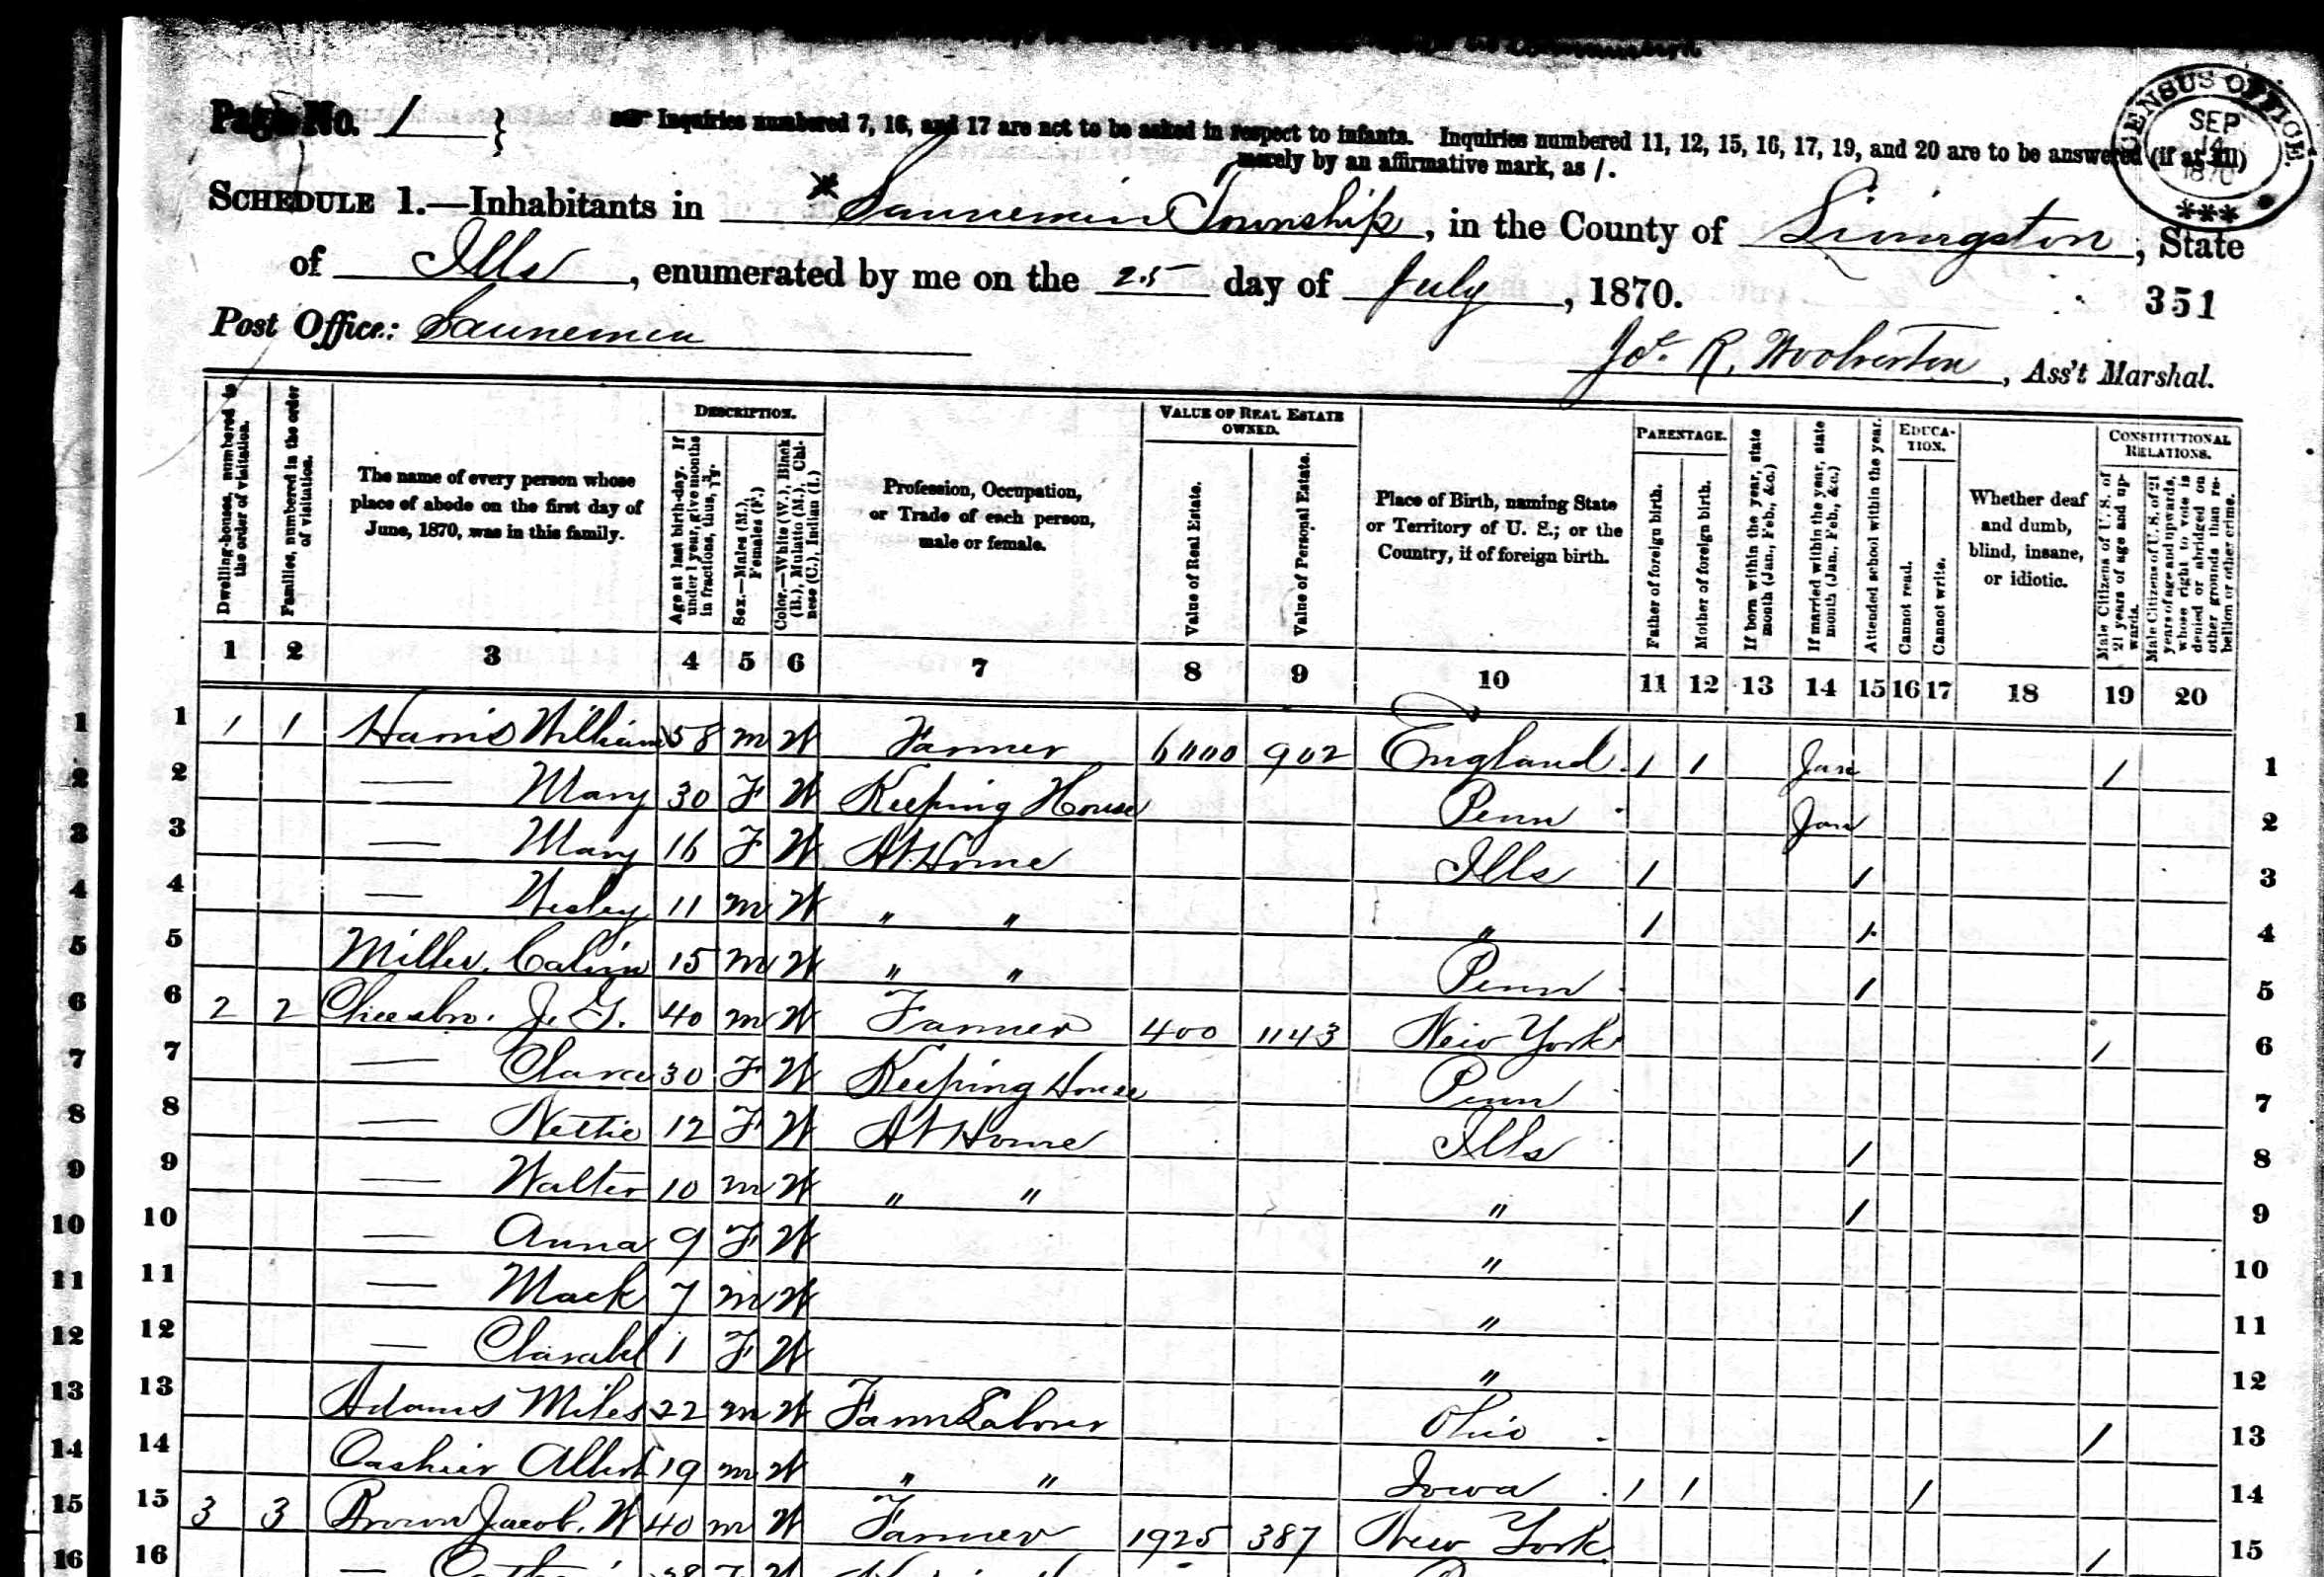 Page No. 1
Inquiries numbered 7, 16, and 17 are not to be asked in respect to infants. Inquiries numbered 11, 12, 15, 16, 17, 19, and 20 are to be answered (if at all)
merely by an affirmative mark, as /.
CENSUS OFFICE.
SEP
14
1870
***
SCHEDULE 1.—Inhabitants in Saunemin Township, in the County of Livingston, State
of Ills, enumerated by me on the 25 day of July, 1870.
351
Post Office: Saunemin
Jos. R. Woolverton, Ass't Marshal.
Dwelling-houses, numbered in the order of visitation.
Families, numbered in the order of visitation.
The name of every person whose place of abode on the first day of June, 1870, was in this family.
DESCRIPTION.
Age at last birth-day. If under 1 year, give months in fractions, thus, 3/12.
Sex.—Males (M.), Females (F.)
Color.—White (W.), Black (B.), Mulatto (M.), Chinese (C.), Indian (I.)
Profession, Occupation, or Trade of each person, male or female.
VALUE OF REAL ESTATE OWNED.
Value of Real Estate.
Value of Personal Estate.
Place of Birth, naming State or Territory of U. S.; or the Country, if of foreign birth.
PARENTAGE.
Father of foreign birth.
Mother of foreign birth.
If born within the year, state month (Jan., Feb., &c.)
If married within the year, state month (Jan., Feb., &c.)
Attended school within the year.
EDUCATION.
Cannot read.
Cannot write.
Whether deaf and dumb, blind, insane, or idiotic.
CONSTITUTIONAL RELATIONS.
Male Citizens of U. S. of 21 years of age and upwards.
Male Citizens of U. S. of 21 years of age and upwards, whose right to vote is denied or abridged on other grounds than rebellion or other crime.
1 2 3 4 5 6 7 8 9 10 11 12 13 14 15 16 17 18 19 20
1 1 1 1 Harris William 58 m W Farmer 6000 902 England / / Jan / 1
2 2 — Mary 30 F W Keeping House Penn Jan 2
3 3 — Mary 16 F W At Home Ills / / 3
4 4 — Wesley 11 m W " " " / / 4
5 5 Miller, Calvin 15 m W " " Penn / 5
6 6 2 2 Cheesbro. J. G. 40 m W Farmer 400 1143 New York / 6
7 7 — Clara 30 F W Keeping House Penn 7
8 8 — Nettie 12 F W At Home Ills / 8
9 9 — Walter 10 m W " " " / 9
10 10 — Anna 9 F W " 10
11 11 — Mack 7 m W " 11
12 12 — Clarabel 1 F W " 12
13 13 Adams Miles 22 m W Farm Labour Ohio / 13
14 14 Cashier Albert 19 m W " " Iowa / / / 14
15 15 3 3 Brown Jacob. W 40 m W Farmer 1925 387 New York / 15
16 16 —